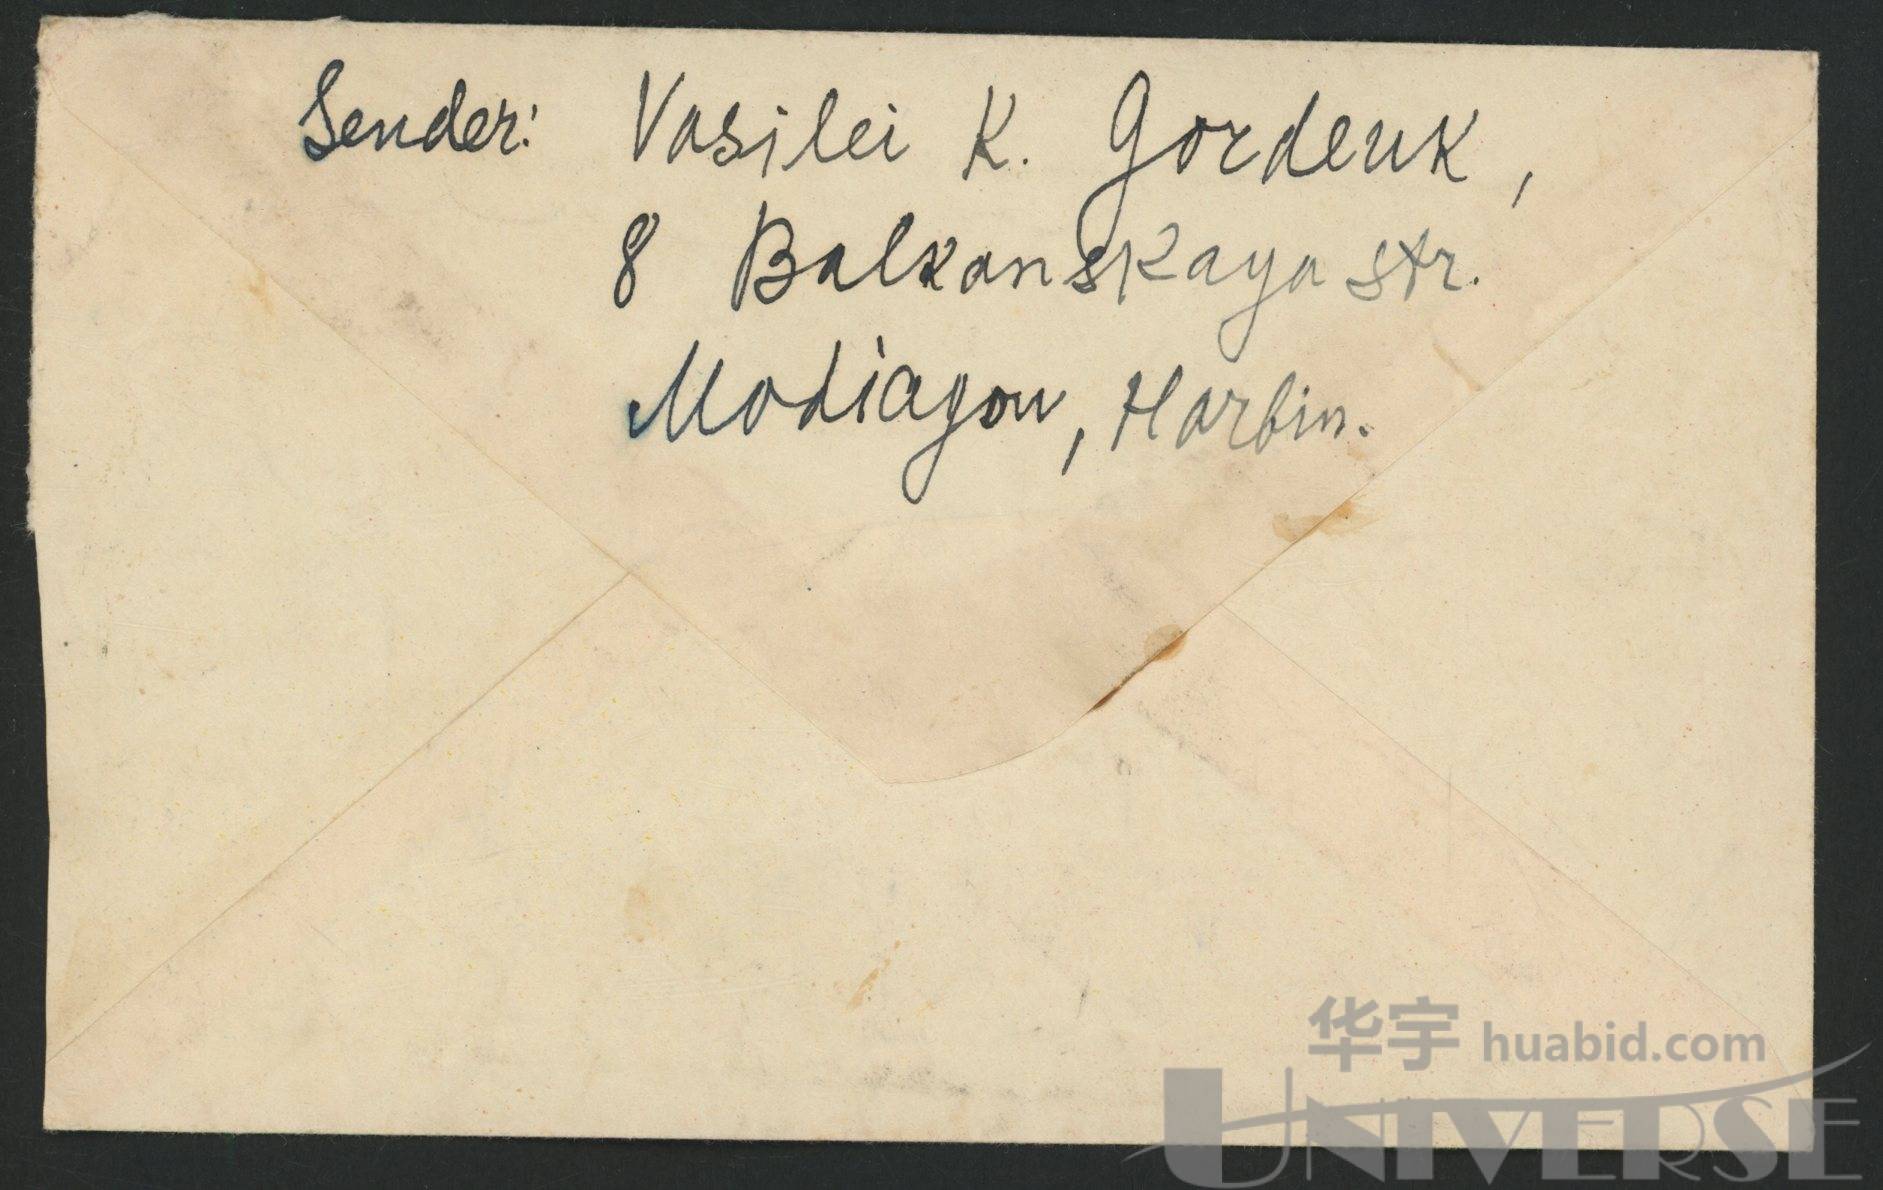 Sender: Vasilei K. Gordeuk,
8 Balkanskaya str.
Modiagou, Harbin.
华宇 huabid.com
UNIVERSE